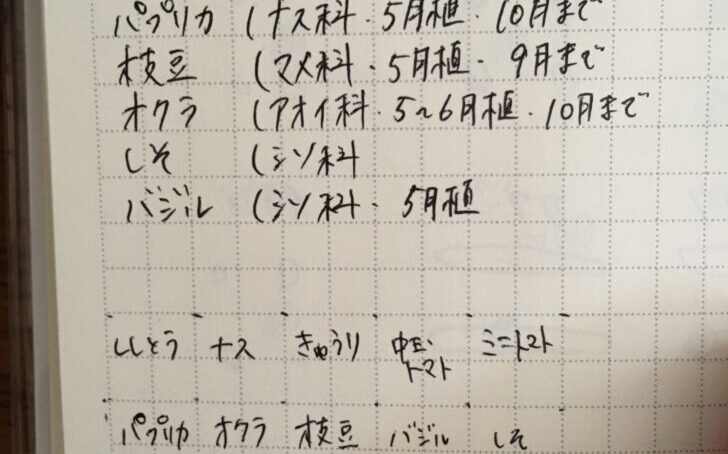 パプリカ (ナス科・5月植・10月まで
枝豆 (マメ科・5月植・9月まで
オクラ (アオイ科・5~6月植・10月まで
しそ (シソ科
バジル (シソ科・5月植
ししとう ナス きゅうり 中玉トマト ミニトマト
パプリカ オクラ 枝豆 バジル しそ